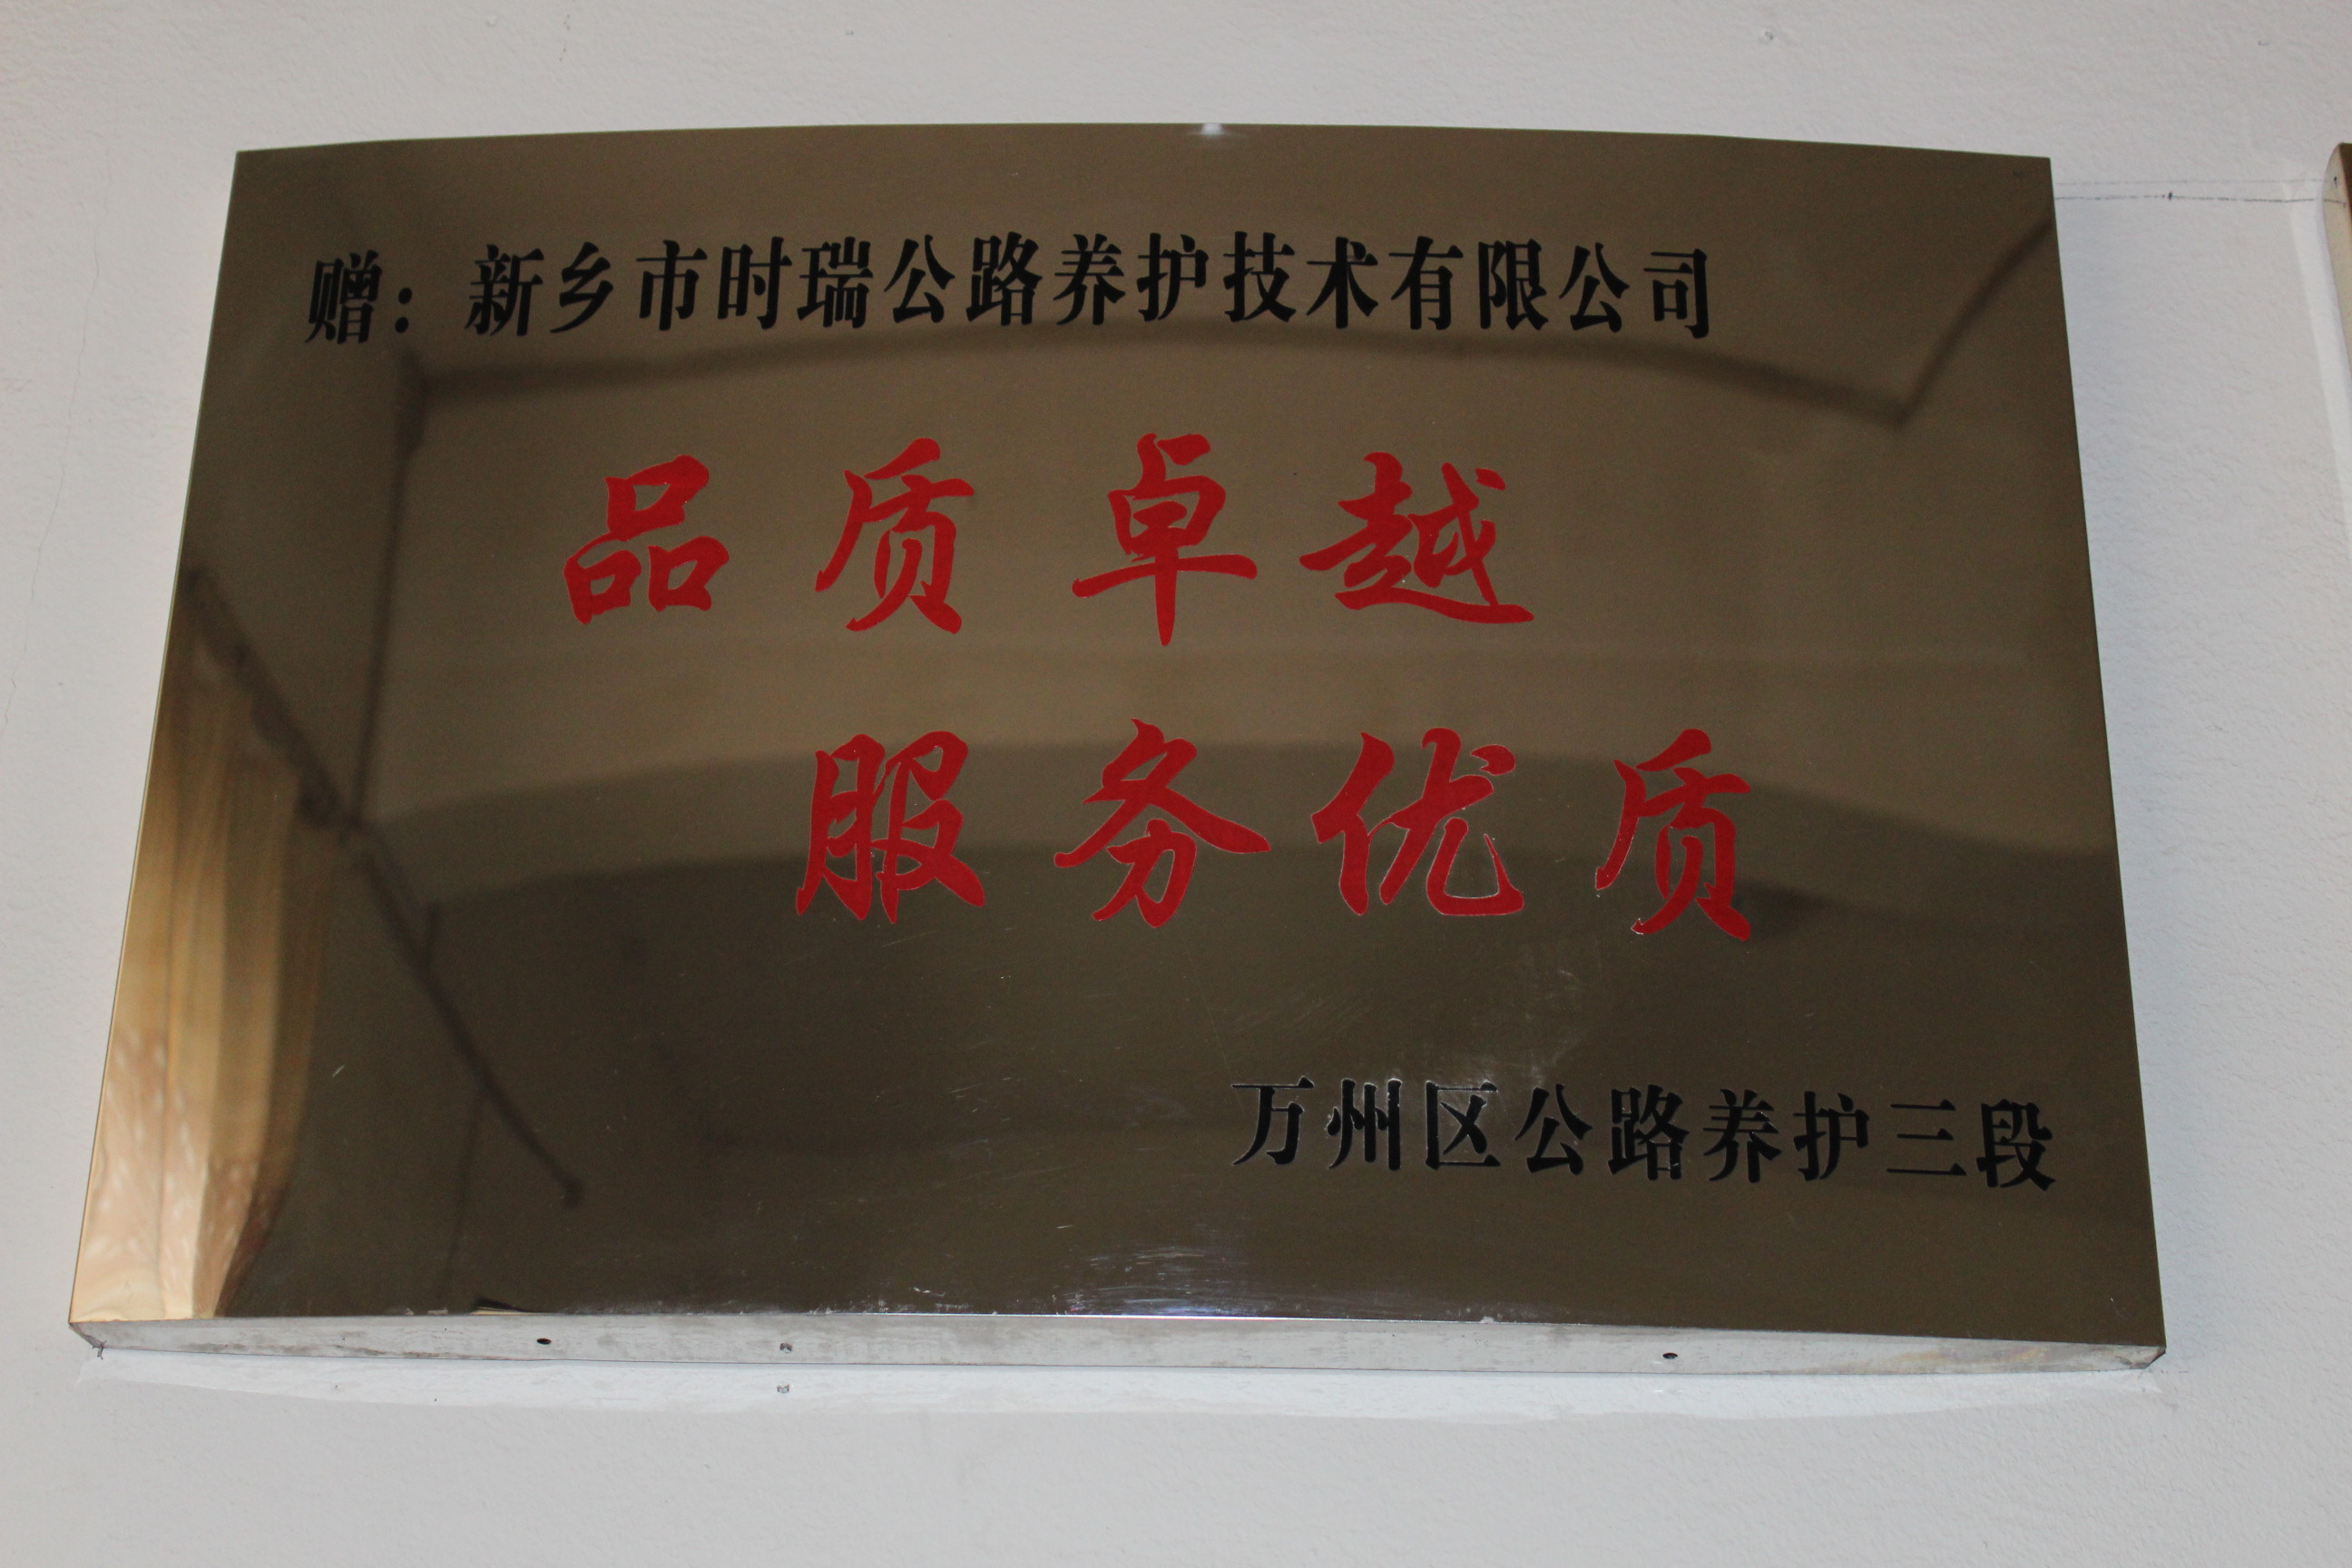 赠：新乡市时瑞公路养护技术有限公司
品质卓越
服务优质
万州区公路养护三段